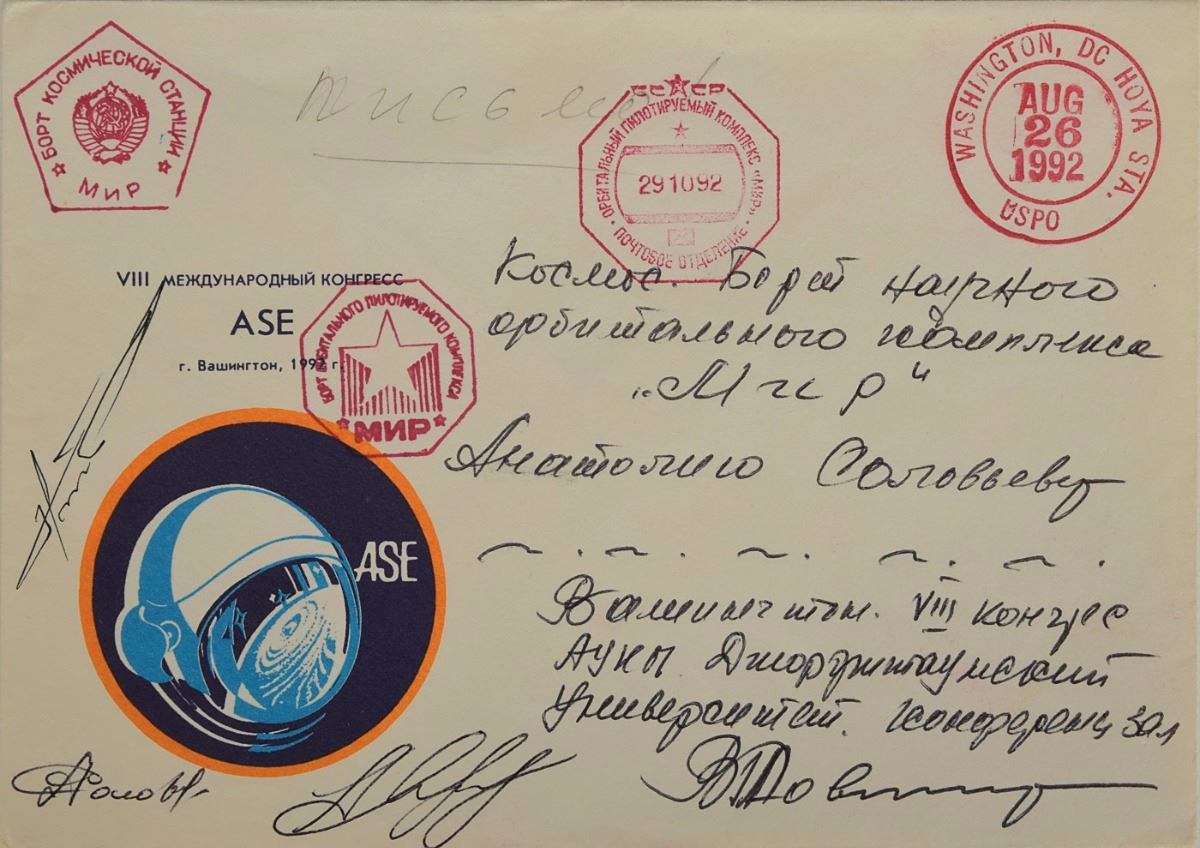 БОРТ КОСМИЧЕСКОЙ СТАНЦИИ
МИР
письмо
СССР
ОРБИТАЛЬНЫЙ ПИЛОТИРУЕМЫЙ КОМПЛЕКС «МИР»
291092
ПОЧТОВОЕ ОТДЕЛЕНИЕ
WASHINGTON, DC HOYA STA.
AUG
26
1992
USPO
VIII МЕЖДУНАРОДНЫЙ КОНГРЕСС
ASE
г. Вашингтон, 1992 г.
БОРТ ОРБИТАЛЬНОГО ПИЛОТИРУЕМОГО КОМПЛЕКСА
МИР
ASE
Космос. Борт научного
орбитального комплекса
„Мир"
Анатолию Соловьеву
Вашингтон. VIII конгрес
АУКП Джорджтаунский
Университет. конференц зал